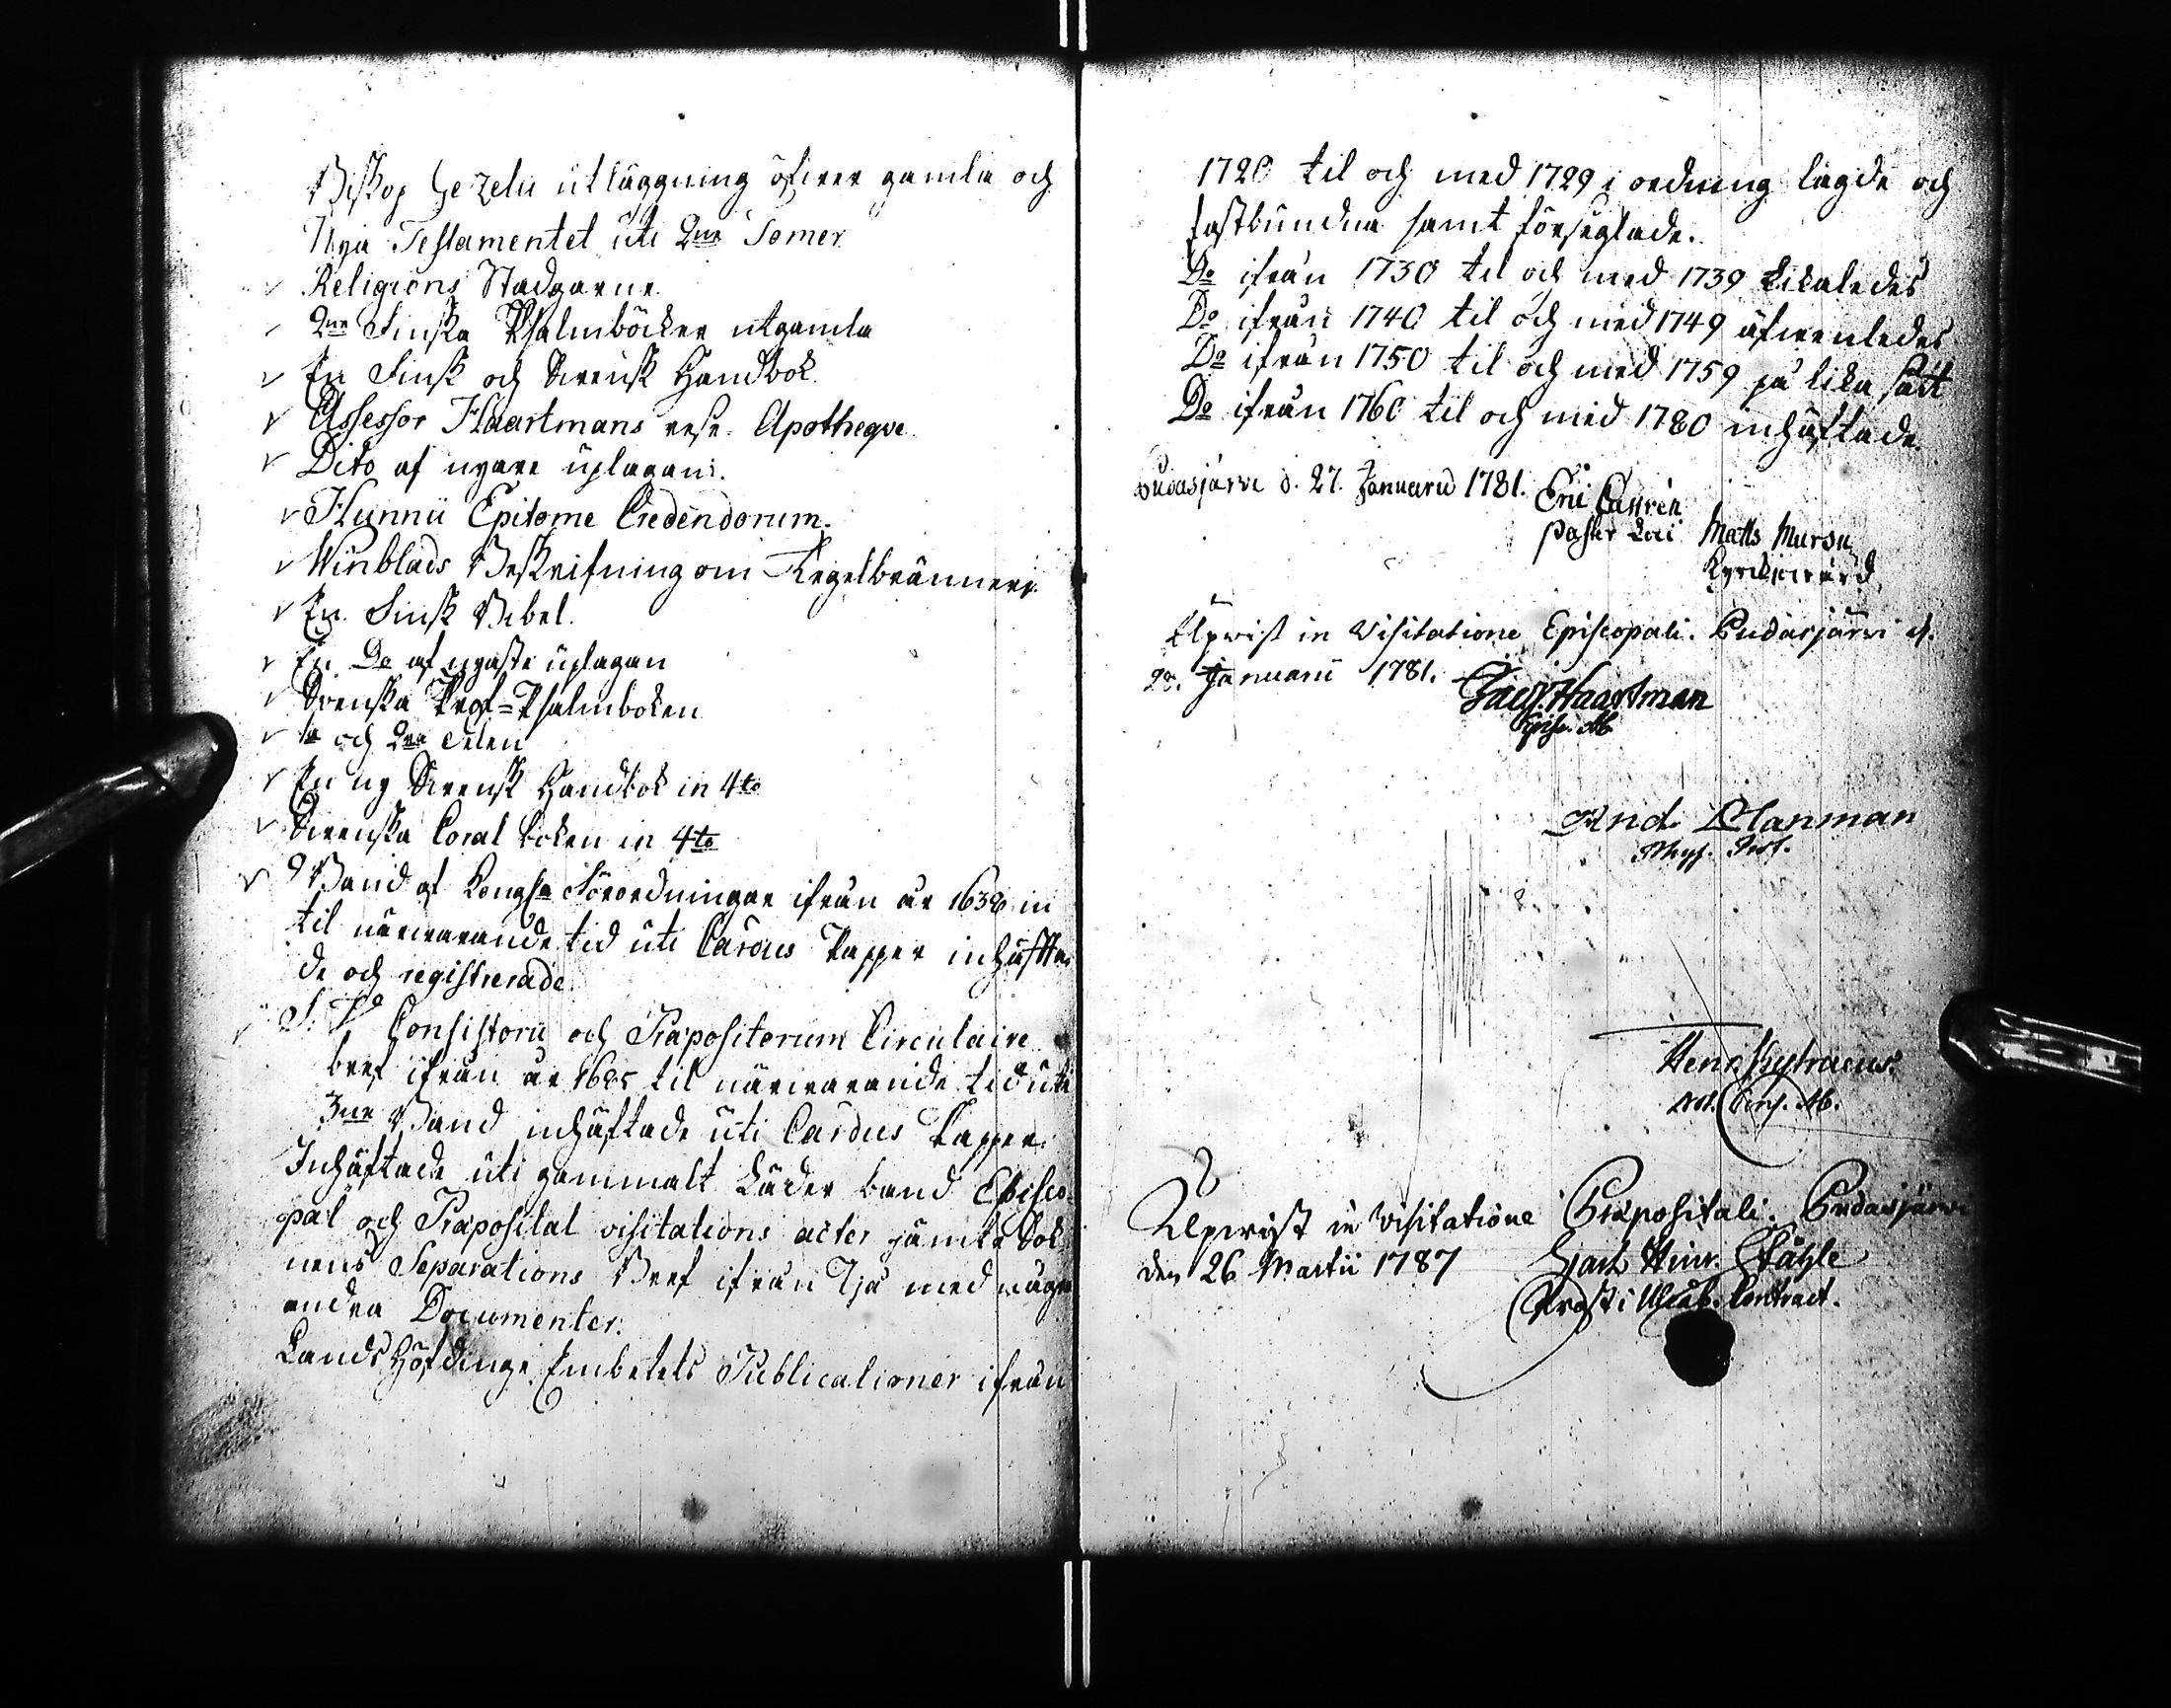 Biskop Gezelii utläggning öfwer gamla och
Nya Testamentet uti 2ne Tomer
Religions Stadgarne
2ne Finska Psalmböcker utgamla
En Finsk och Swensk Handbok
Assessor Haartmans rese Apotheqve
Dito af nyare uplagan
Hunnii Epitome Credendorum.
Winblads Beskrifning om Tegelbränneri
En Finsk Bibel.
En Do af nyaste uplagan
Svenska Prof-Psalmboken
1a och 2dra delen
En ny Swensk Handbok in 4to
Swenska Coral boken in 4to
9 Band af Kongl. Förordningar ifrån år in
til närwarande tid uti Cardus Papper inhäfta
de och registrerade
S. V. Consistorii och Præpositorum Circulaire
bref ifrån år til närwarande tid uti
3ne Band inhäftade uti Cardus Papper.
Inhäftade uti gammalt Läder band Episco-
pal och Præposital visitations acter jämte Sok
nens Separations Bref ifrån Ijå med några
andra Documenter.
Landshöfdinge Embetets Publicationer ifrån
1720 til och med 1729 i ordning lagde och
fastbundna samt förseglade.
Do ifrån 1730 til och med 1739 Likaledes
Do ifrån 1740 til och med 1749 äfwenledes
Do ifrån 1750 til och med 1759 på lika sätt
Do ifrån 1760 til och med 1780 inhäftade
Pudasjärvi d. 27. Januarii 1781. Eric Castrén
Pastor Loci Matts Mursu
Kyrckiowärd
Upwist in Visitatione Episcopali. Pudasjärvi d.
28. Januarii 1781. Jacob Haartman
Episc. Ab.
And. Planman
Phys. Prof.
Henr. Kystraeus.
Not. Cons. Ab.
Upwist in visitatione Præpositali. Pudasjärvi
den 26 Martii 1787 Zach. Heinr. Ståhle
Prost i Uhleåb. Contract.